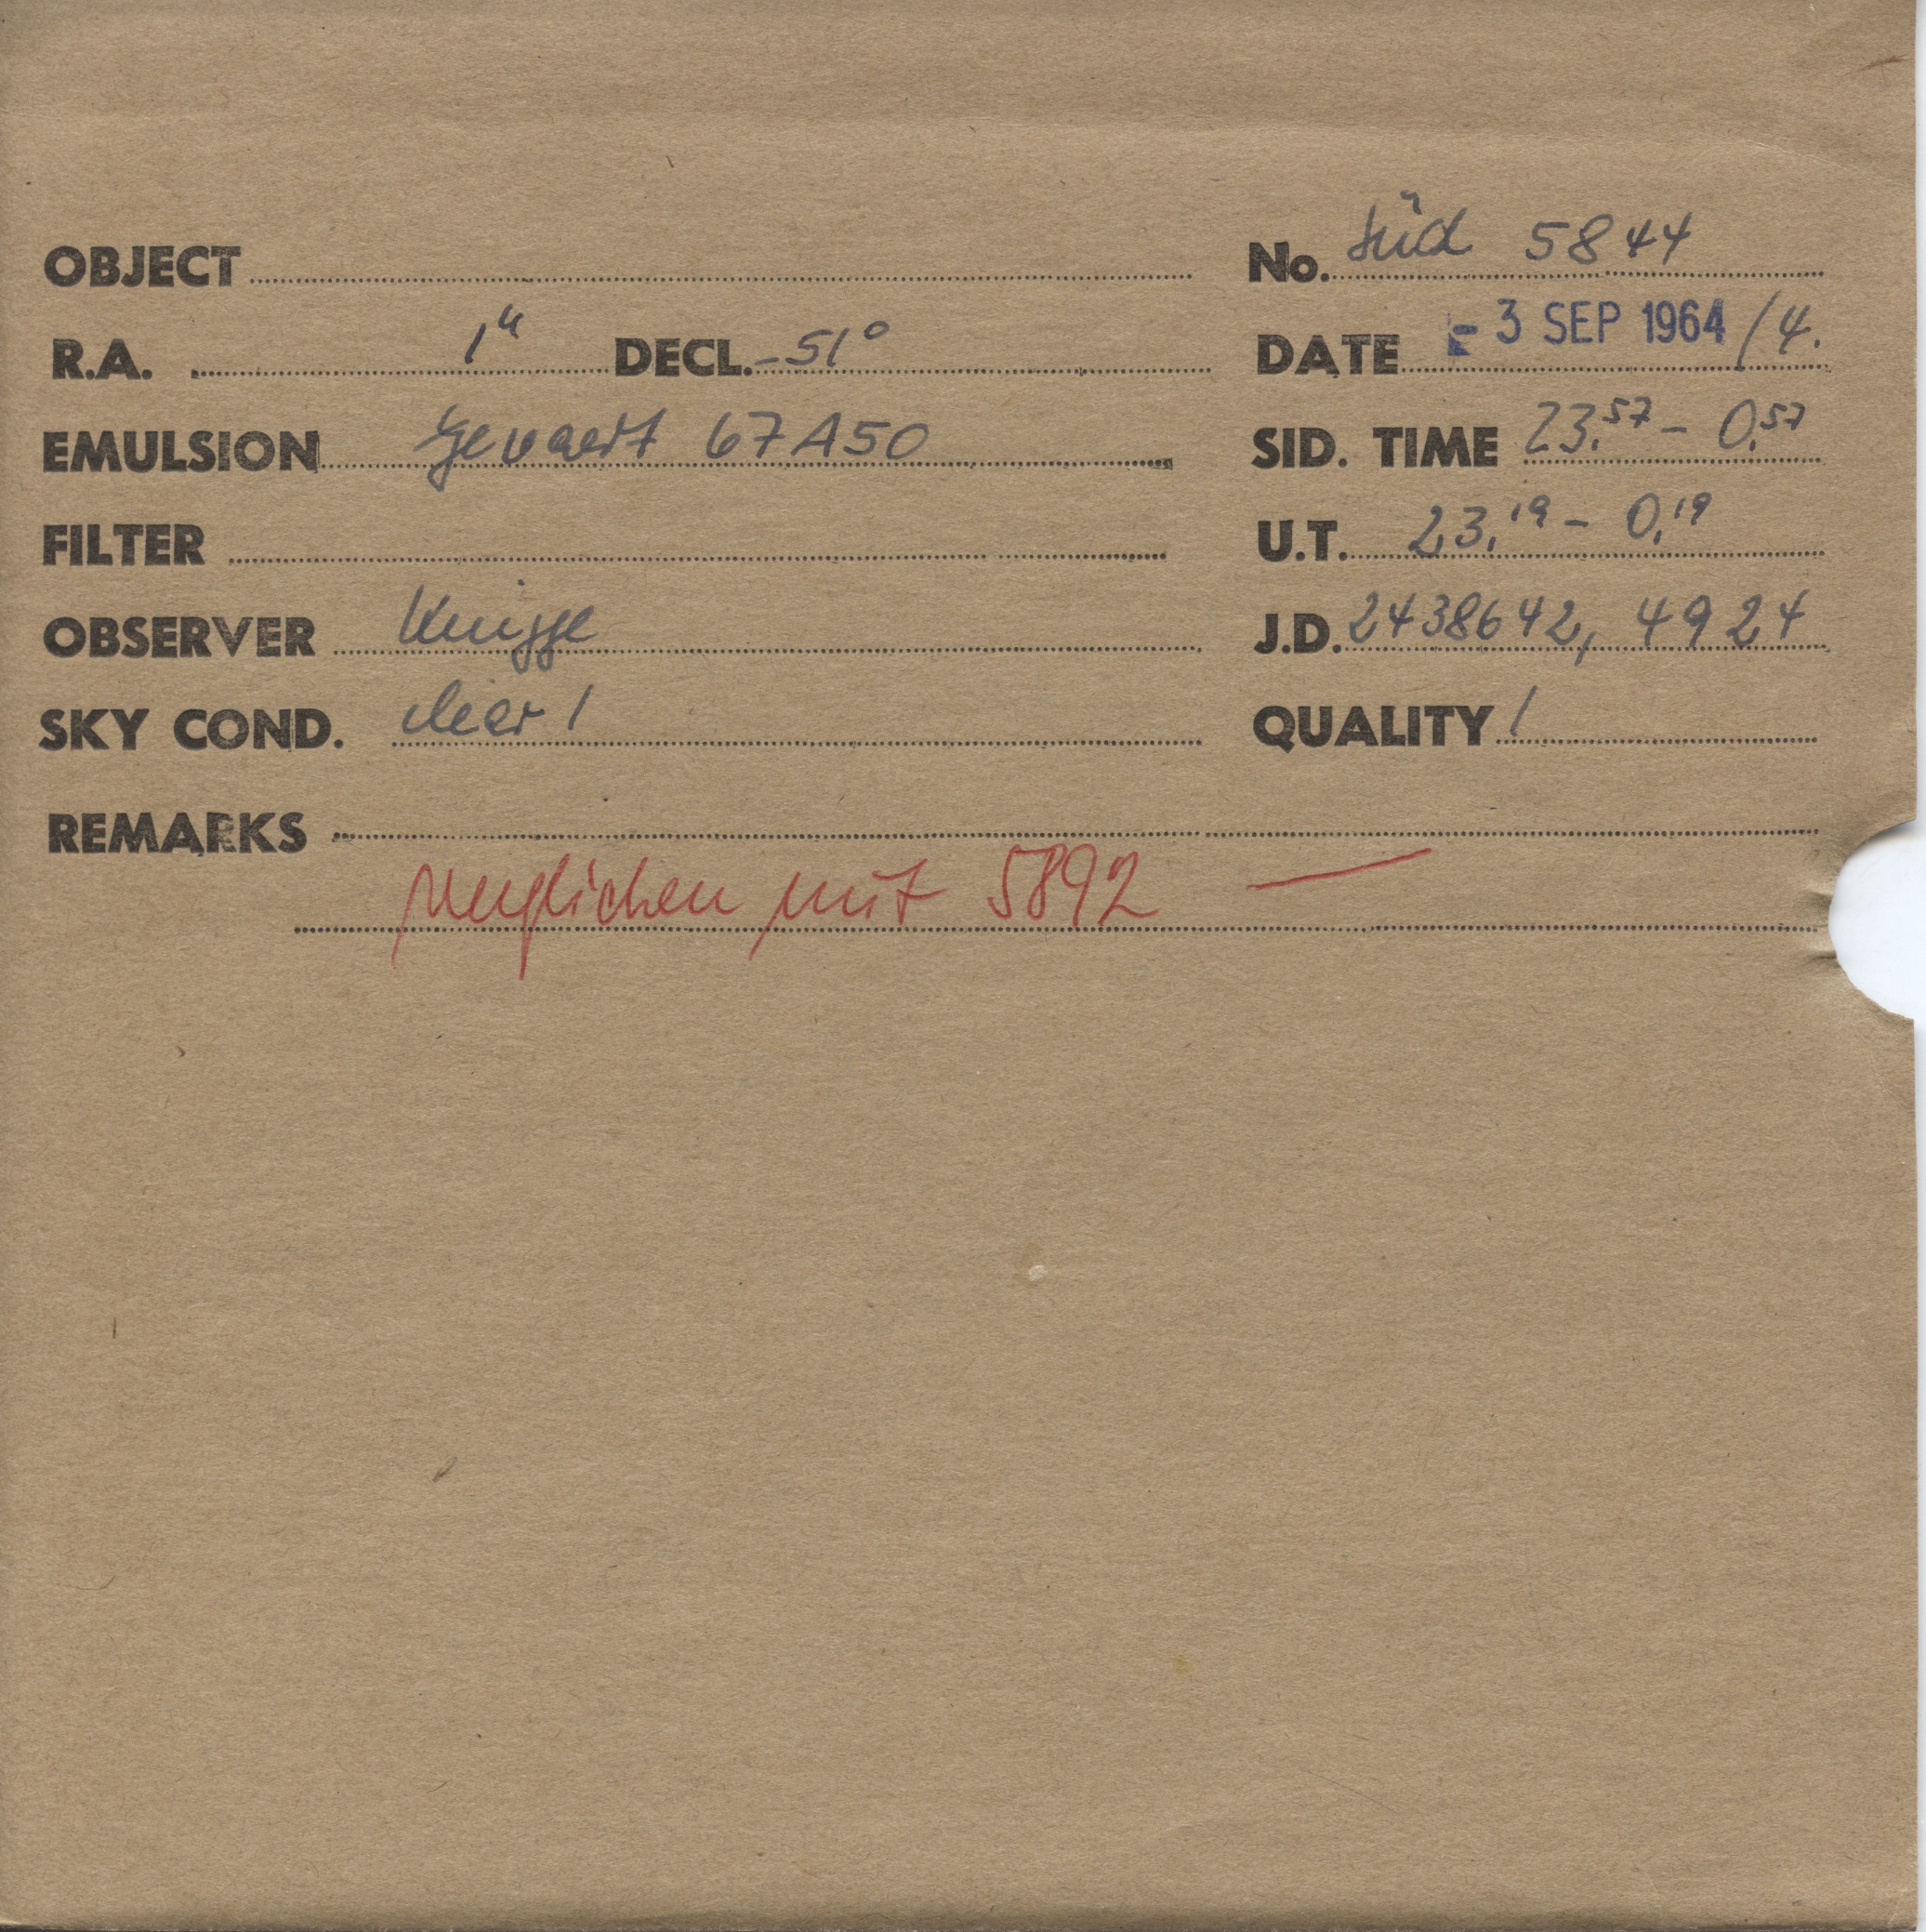 OBJECT No. Süd 5844
R.A. 1h DECL. -51° DATE - 3 SEP 1964 /4.
EMULSION Gevaert 67A50 SID. TIME 23.57 - 0.57
FILTER U.T. 23.19 - 0.19
OBSERVER Knigge J.D. 2438642, 4924
SKY COND. clear 1 QUALITY 1
REMARKS
verglichen mit 5892 —